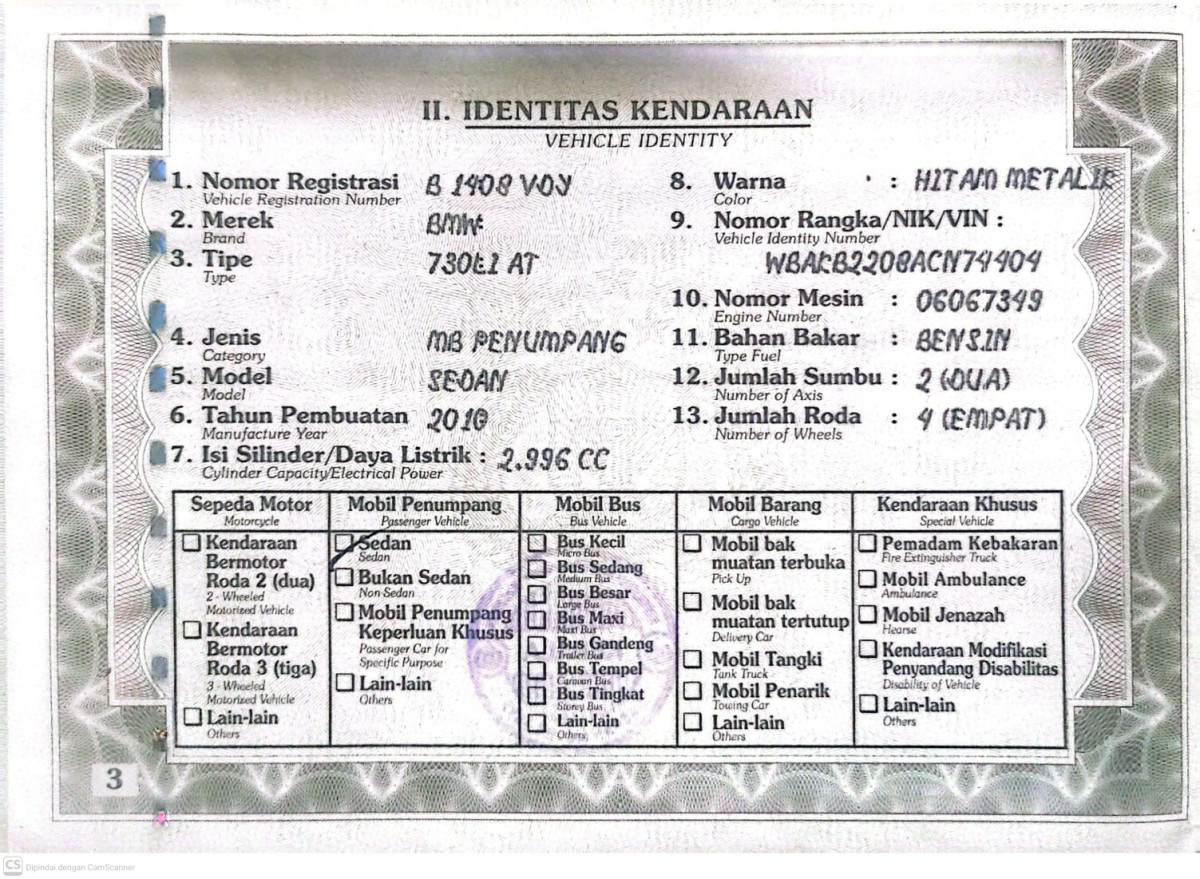 II. IDENTITAS KENDARAAN
VEHICLE IDENTITY
1. Nomor Registrasi B 1408 VOY
Vehicle Registration Number
2. Merek BMW
Brand
3. Tipe 730LI AT
Type
4. Jenis MB PENUMPANG
Category
5. Model SEDAN
Model
6. Tahun Pembuatan 2010
Manufacture Year
7. Isi Silinder/Daya Listrik : 2.996 CC
Cylinder Capacity/Electrical Power
8. Warna : HITAM METALIK
Color
9. Nomor Rangka/NIK/VIN :
Vehicle Identity Number
10. Nomor Mesin : 06067349
Engine Number
11. Bahan Bakar : BENSIN
Type Fuel
12. Jumlah Sumbu : 2 (DUA)
Number of Axis
13. Jumlah Roda : 4 (EMPAT)
Number of Wheels
Sepeda Motor
Motorcycle
Kendaraan
Bermotor
Roda 2 (dua)
2 - Wheeled
Motorized Vehicle
Kendaraan
Bermotor
Roda 3 (tiga)
3 - Wheeled
Motorized Vehicle
Lain-lain
Others
Mobil Penumpang
Passenger Vehicle
Sedan
Sedan
Bukan Sedan
Non-Sedan
Mobil Penumpang
Keperluan Khusus
Passenger Car for
Specific Purpose
Lain-lain
Others
Mobil Bus
Bus Vehicle
Bus Kecil
Micro Bus
Bus Sedang
Medium Bus
Bus Besar
Large Bus
Bus Maxi
Maxi Bus
Bus Gandeng
Trailer Bus
Bus Tempel
Caravan Bus
Bus Tingkat
Storey Bus
Lain-lain
Others
Mobil Barang
Cargo Vehicle
Mobil bak
muatan terbuka
Pick Up
Mobil bak
muatan tertutup
Delivery Car
Mobil Tangki
Tank Truck
Mobil Penarik
Towing Car
Lain-lain
Others
Kendaraan Khusus
Special Vehicle
Pemadam Kebakaran
Fire Extinguisher Truck
Mobil Ambulance
Ambulance
Mobil Jenazah
Hearse
Kendaraan Modifikasi
Penyandang Disabilitas
Disability of Vehicle
Lain-lain
Others
3
CS Dipindai dengan CamScanner